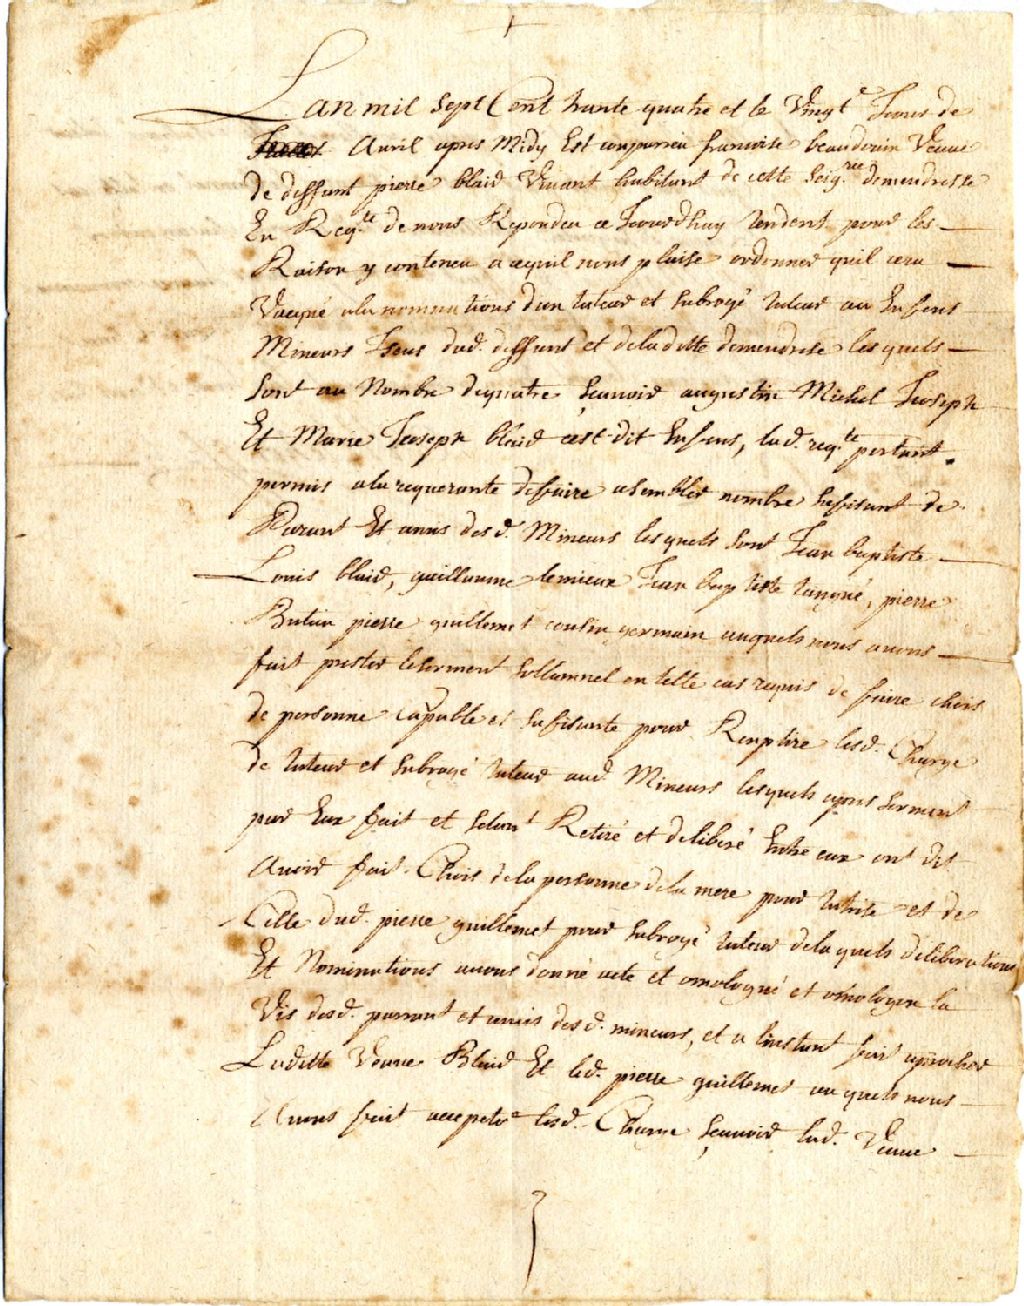 Lan mil sept Cent trante quatre et le Vingt.e Jours de
Avril apres Midy Est comparreu francoise beaudouin Veuve
de deffunt pierre blaid Vivant habitant de cette Seig.rie demendresse
En Req.te de nous Reponden ce Jourdhuy tendent pour les
Raison y conteneu a ce quil nous plaise ordonner quil cera
Vacqué a la nominations dun tuteur et subrogé tuteur au Enfens
Mineurs Iseus dud. deffunt et de la ditte demendrese les quels
sont au Nombre de quatre Scauoir augustin Michel Joseph
Et Marie Joseph blaid cest dit Enfens, lad. req.te portant
permis a la requerante de faire asembler nombre sufisant de
Parant Et amis des d. Mineurs les quels sont Jean baptiste
Louis blaid, guillaume lemieux Jean baptiste tanqué, pierre
Butin pierre guillemet cousin germain auquels nous avons
fait prester le serment sollamnel en telle cas requis de faire chois
de personne Capable et sufisante pour Remplire lesd. Charge
de tuteur et subrogé tuteur aud. Mineurs lesquels apres serment
par Eux fait et selont Retiré et deliberé Entre eux ont dit
Avoir fait Chois de la personne de la mere pour tutrise et de
Celle dud. pierre guillemet pour subrogé tuteur de la quels deliberations
Et Nominations avons donné acte et omologué et omologon la
Vis desd. parront et amis des d. mineurs, et a linstant fait aprocher
Laditte Veuve Blaid Et led. pierre guillemet au quels nous
Avons fait accepter lesd. Charge Scauoir lad. Veuve